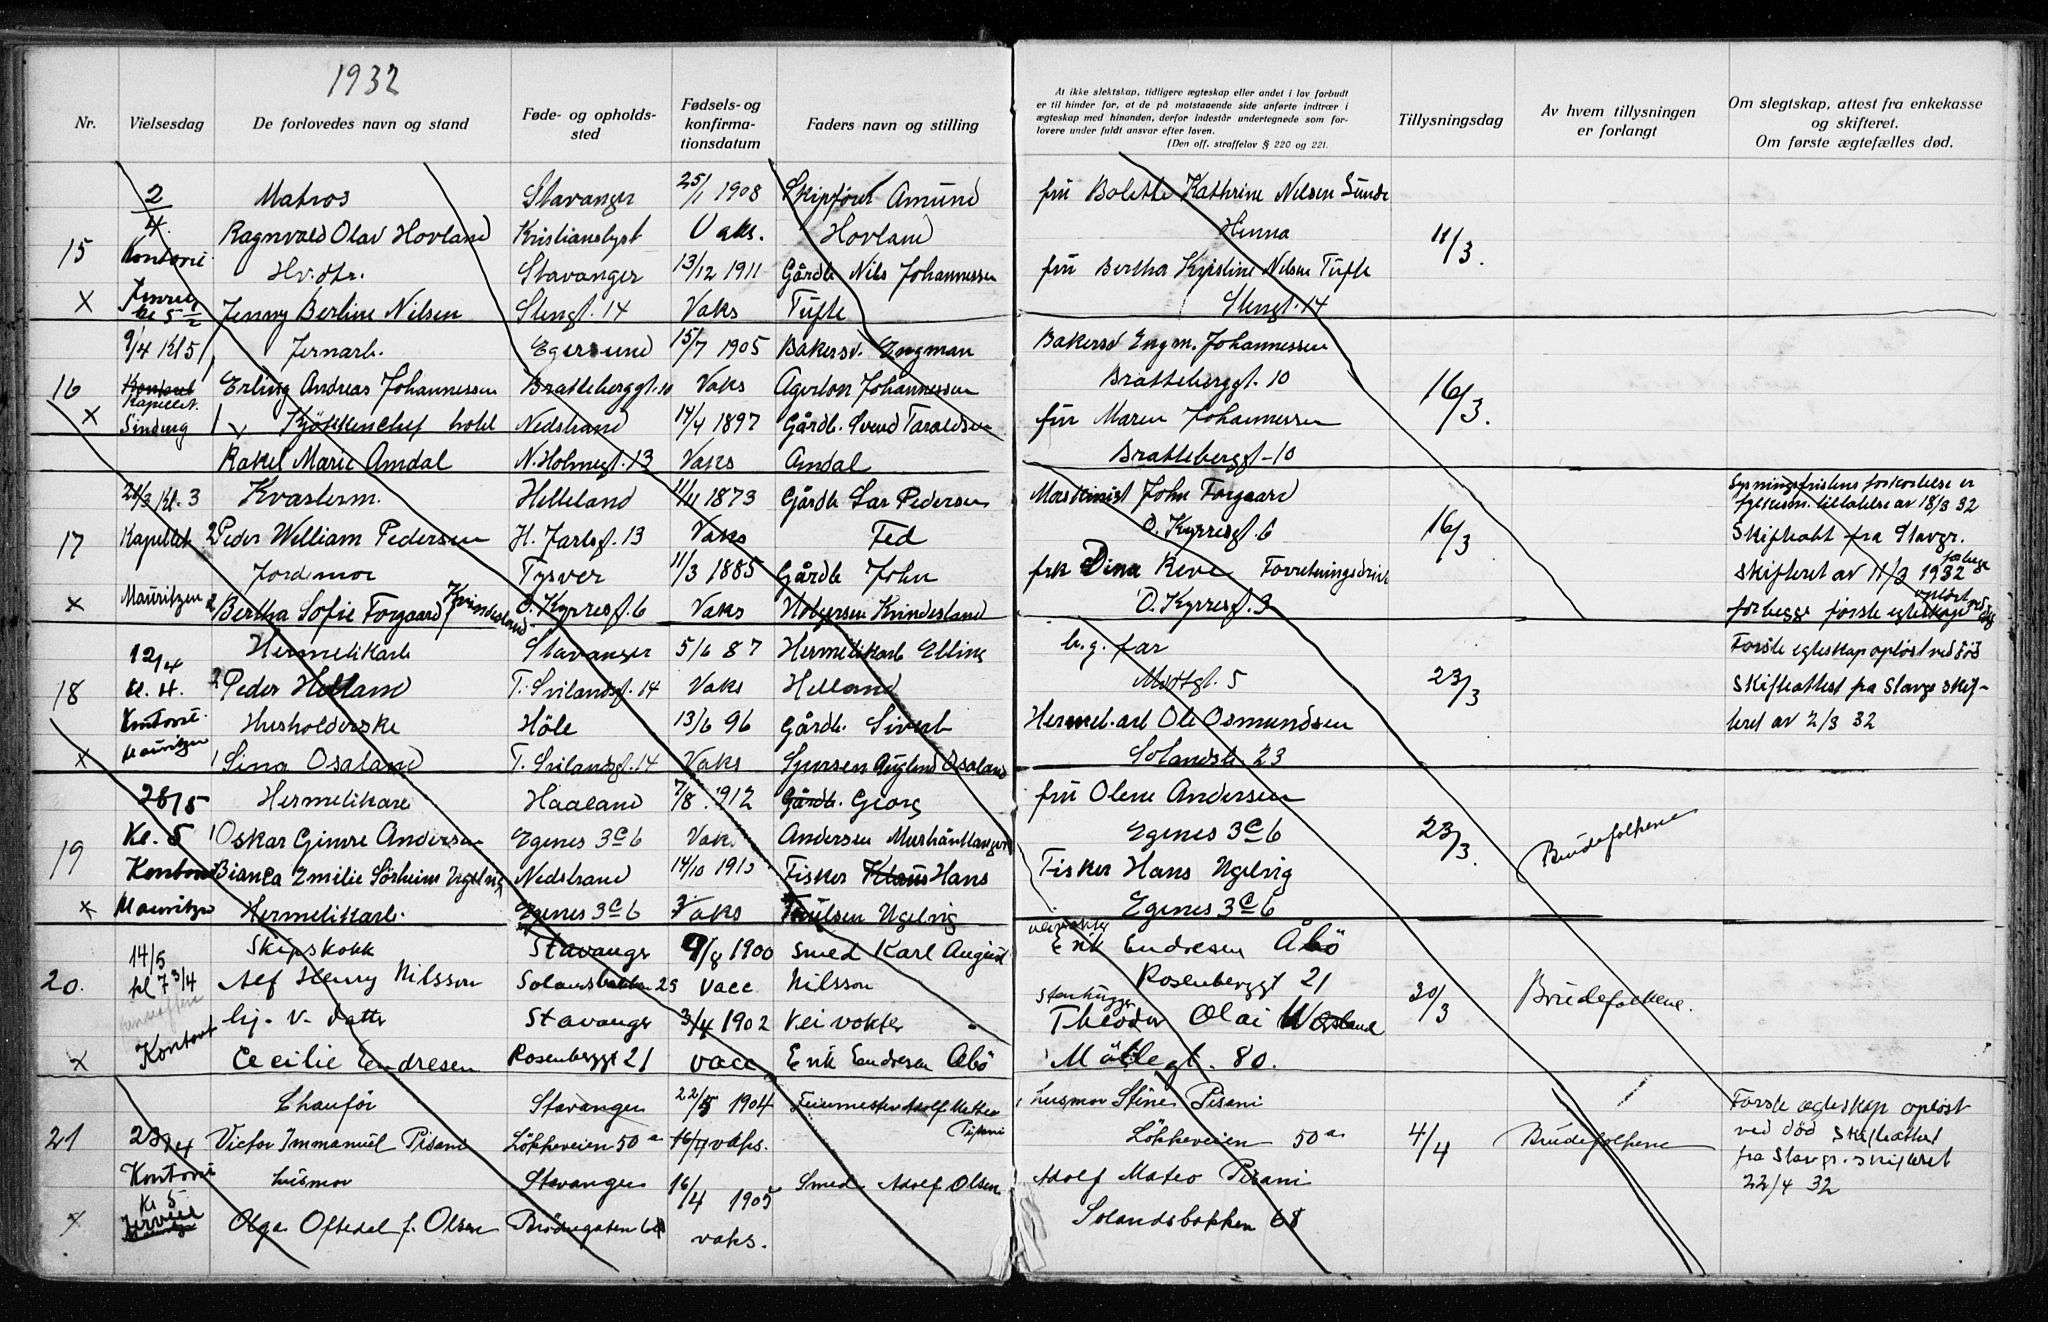 1932
Nr.
Vielsesdag
De forlovedes navn og stand
Føde- og opholds-
sted
Fødsels- og
konfirma-
tionsdatum
Faders navn og stilling
At ikke slektskap, tidligere ægteskap eller andet i lov forbudt
er til hinder for, at de på motstaaende side anførte indtrær i
ægteskap med hinanden, derfor indestår undertegnede som for-
lovere under fuldt ansvar efter loven.
(Den off. straffelov § 220 og 221.
Tillysningsdag
Av hvem tillysningen
er forlangt
Om slegtskap, attest fra enkekasse
og skifteret.
Om første ægtefælles død.
2/4. Matros Stavanger 25/1 1908 Skipfører Amund fru Bolette Kathrine Nilsen Sunde
Ragnvald Olav Hovland Kristianslyst Vaks. Hovland Hinna
15 Kontoret Hv.dtr. Stavanger 13/12 1911 Gårdb Nils Johannessen fru Bertha Kristine Nilsen Tufte 11/3.
X kl 5 1/2 Jenny Berline Nilsen Stengt. 14 Vaks Tufte Stengt. 14
9/4 Kl 5 Jernarb. Egersund 15/7 1905 Bakersv. Engman Bakersv Engm. Johannessen
16 Kontoret 1 Erling Andreas Johannessen Bratteberggt. 10 Vaks Agerton Johannessen Bratteberggt. 10 16/3.
Kapellet.
X Sinding 1 Kjøkkenchef hotel Nedstrand 14/4 1897 Gårdb. Svend Taraldsen fru Maren Johannessen
Rakel Marie Amdal N. Holmegt. 13 Vaks Amdal Bratteberggt - 10
21/3 Kl. 3 Kvasterm. Helleland 11/11 1873 Gårdb Lar Pedersen Maskinist John Torgaard Lysningsfristens forkortelse er
fylkesm. tillatelse av 18/3 32
17 Kapellet 2 Peder William Pedersen H. Jarlsgt. 13 Vaks Fed O. Kyrresgt. 6 16/3 Skifteatt fra Stavgr.
Jordmor Tysvær 11/3 1885 Gårdb John frk Dina Reve Forretningsdriv skifteret av 11/3 1932
X Mauritzen 2 Bertha Sofie Torgaard Kvindesland O. Kyrresgt. 6 Vaks Kvindesland O. Kyrresgt. 3 første egteskap
12/4 Hermetikarb Stavanger 5/6 87 Hermetikarb Elling b. g. far Første egteskap opløst ved død
18 kl. 4. 2 Peder Helland T. Svilandsgt. 14 Vaks Helland 5 23/3 Skifteattest fra Stavgr skif-
Kontoret. Husholderske Høle 13/6 96 Gårdb. Sivert Hermet. arb Ole Osmundsen teret av 2/3 32
X Mauritzen 1 Sina Osaland T. Svilandsgt. 14 Vaks Osaland Solandsb 23
28/5 Hermetikarb Haaland 7/8 1912 Gårdb. Georg fru Olene Andersen
Kl. 5 1 Oskar Gimre Andersen Egenes 3c 6 Vaks Andersen Egenes 3c 6 23/3. Brudefolkene
19 Kontoret Bianca Emilie Sørheim Ugelvig Nedstrand 14/10 1913 Fisker Klaus Hans Fisker Hans Ugelvig
X Mauritzen Hermetikarb. Egenes 3c 6 Vaks Ugelvig Egenes 3c 6
14/5 Skipskokk Stavangr 9/8 1900 Smed Karl August veivokter Erik Endresen Åbö
20. kl 7 3/4 Alf Henry Nilsson Solandsbakken 23 vacc Nilsson Rosenberggt 21 30/3 Brudefolkene.
hj. v. datter Stavangr 3/4 1902 Veivokter Stenhugger Theodor Olai
X Kontort Cecilie Endresen Rosenberggt 21 vacc Erik Endresen Abö Möllegt. 80.
Chauför Stavanger 22/5 1904 Feiermester Adolf Matteo Pisani husmor Stine Pisani Første ægteskap opløst
21 23/4 Victor Immanuel Pisani Løkkeveien 50 a vaks. Løkkeveien 50 a 4/4 Brudefolkene ved död skifteattest
Kontoret husmor Stavanger 16/4 1905 Smed Adolf Olsen Adolf Mateo Pisani fra Stavgr. skifteret
22/4 32
X Kl 5 Olga Oftedal f. Olsen vaks. Solandsbakken 68